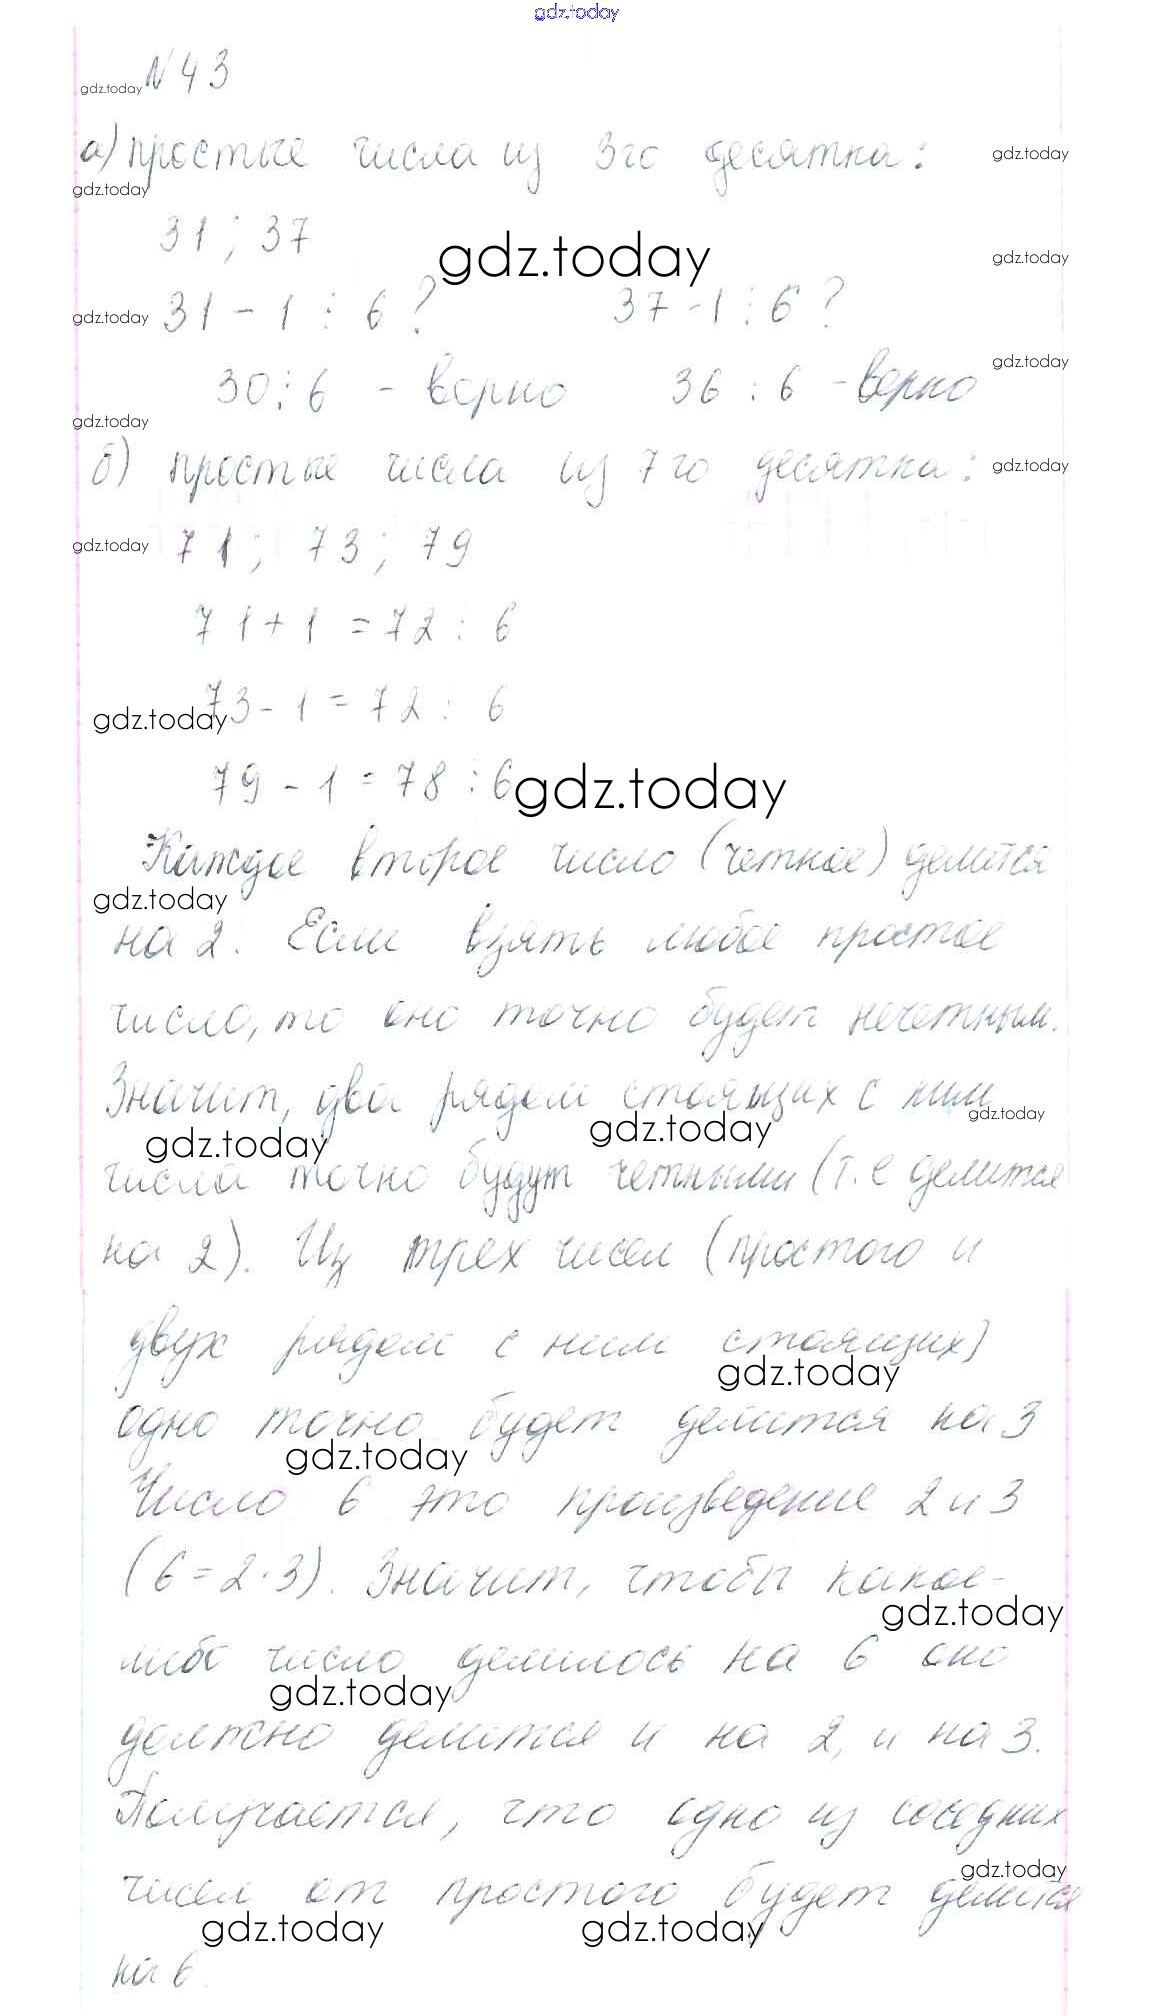 gdz.today
№43
gdz.today
а) простые числа из 3го десятка:
gdz.today
gdz.today
31; 37
gdz.today
gdz.today
31 - 1 ⋮ 6? 37 - 1 ⋮ 6?
gdz.today
30 ⋮ 6 - верно 36 ⋮ 6 - верно
gdz.today
gdz.today
б) простые числа из 7го десятка:
gdz.today
71; 73; 79
gdz.today
71 + 1 = 72 ⋮ 6
73 - 1 = 72 ⋮ 6
gdz.today
79 - 1 = 78 ⋮ 6
gdz.today
Каждое второе число (четное) делится
gdz.today
на 2. Если взять любое простое
число, то оно точно будет нечетным.
Значит, два рядом стоящих с ним
gdz.today
gdz.today
gdz.today
числа точно будут четными (т.е делится
на 2). Из трех чисел (простого и
двух рядом с ним стоящих)
gdz.today
одно точно будет делится на 3
gdz.today
Число 6 это произведение 2 и 3
(6 = 2·3). Значит, чтобы какое-
gdz.today
либо число делилось на 6 оно
gdz.today
должно делится и на 2, и на 3.
Получается, что одно из соседних
gdz.today
чисел от простого будет делится
gdz.today
gdz.today
на 6.